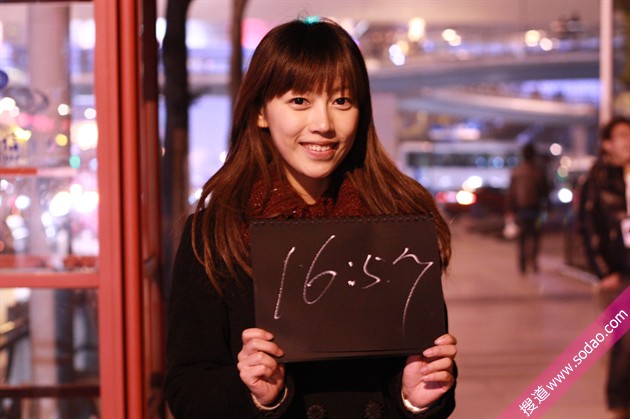 16:57
搜道 www.sodao.com